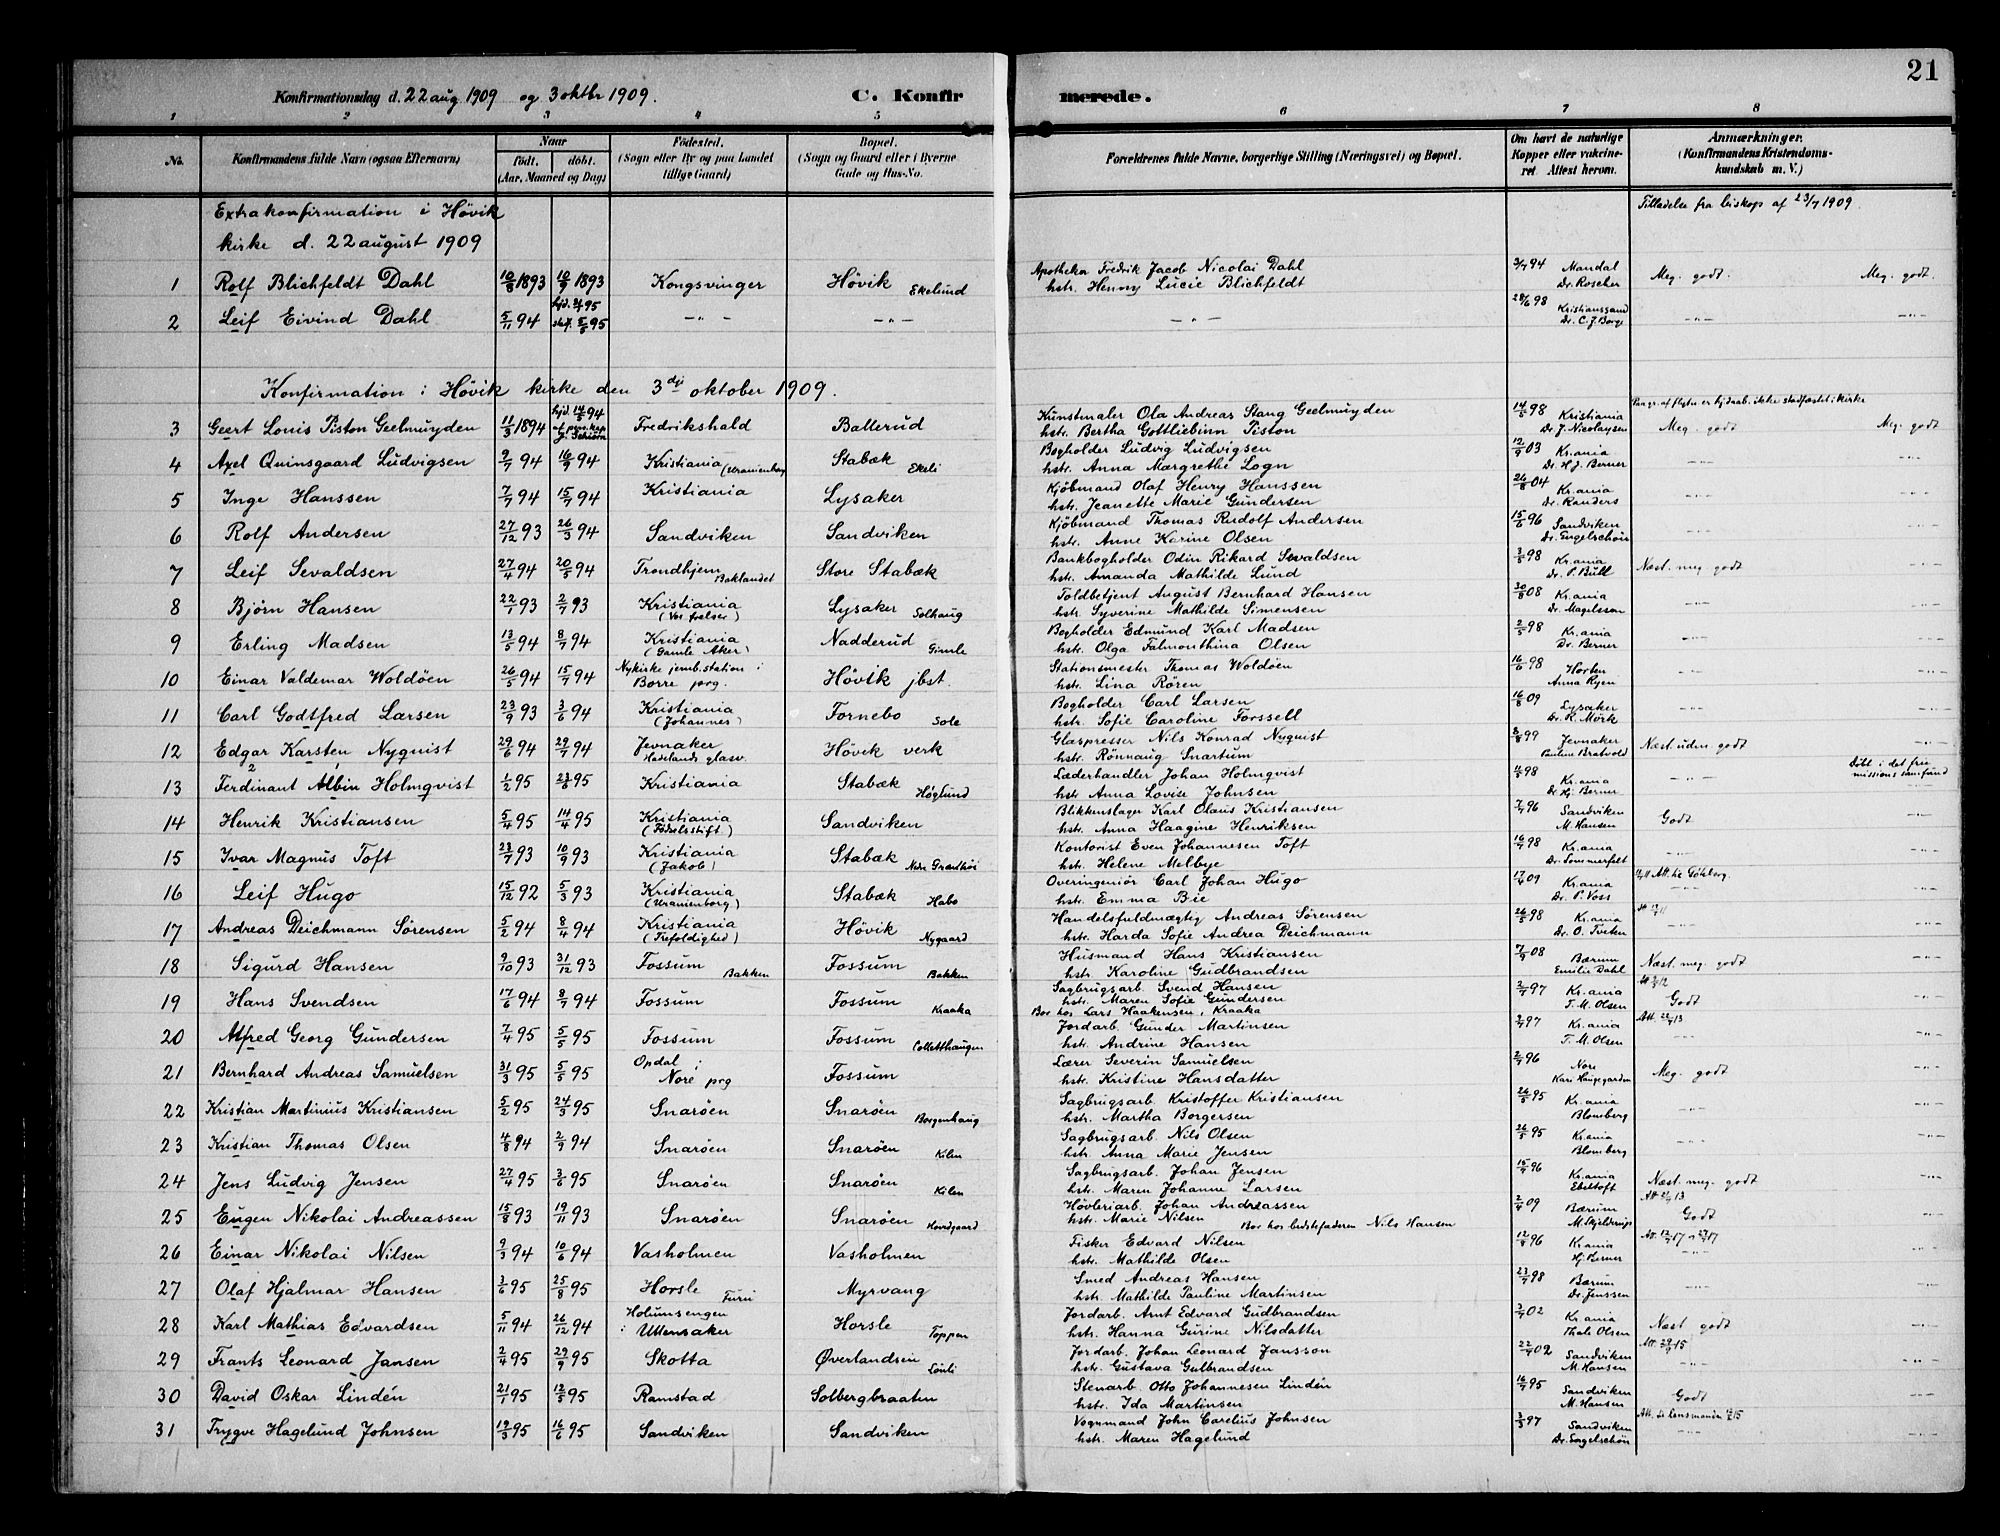 21
Konfirmationsdag d. 22 aug. 1909 og 3 oktbr 1909.
C. Konfirmerede.
1 2 3 4 5 6 7 8
No. Konfirmandens fulde Navn (ogsaa Efternavn). Naar født. døbt. (Aar, Maaned og Dag) Fødested. (Sogn eller By og paa Landet tillige Gaard) Bopæl. (Sogn og Gaard eller i Byerne Gade og Hus-No. Forældrenes fulde Navne, borgerlige Stilling (Næringsvei) og Bopæl. Om havt de naturlige Kopper eller vakcineret. Attest herom. Anmærkninger. (Konfirmandens Kristendomskundskab m. V.)
Extrakonfirmation i Hövik Tilladelse fra biskop af 23/7 1909.
kirke d. 22 august 1909
1 Rolf Blichfeldt Dahl 10/8 1893 10/9 1893 Kongsvinger Hövik Ekelund Apotheker Fredrik Jacob Nicolai Dahl hstr. Henny Lucie Blichfeldt 3/7 94 Mandal Dr. Roscher Meg. godt. Meg. godt.
2 Leif Eivind Dahl 5/11 94 -"- -"- -"- 28/6 98 Kristianssand Dr. C. J. Borge -"- -"-
Konfirmation i Hövik kirke den 3die oktober 1909.
3 Geert Louis Piston Geelmuyden 11/3 1894 Fredrikshald Ballerud Kunstmaler Ola Andreas Stang Geelmuyden hstr. Bertha Gottliebinn Piston 14/5 98 Kristiania Dr. J. Nicolaysen Meg. godt Meg. godt
4 Axel Quinsgaard Ludvigsen 9/7 94 16/9 94 Kristiania (Uranienborg Stabæk Ekeli Bogholder Ludvig Ludvigsen hstr. Anna Margrethe Logn 12/9 03 Kr.ania Dr. H. J. Berner -"- -"-
5 Inge Hanssen 7/7 94 15/7 94 Kristiania Lysaker Kjöbmand Olaf Henry Hanssen hstr. Jeanette Marie Gundersen 26/8 04 Kr.ania Dr. Randers -"- -"-
6 Rolf Andersen 27/12 93 26/3 94 Sandviken Sandviken Kjöbmand Thomas Rudolf Andersen hstr. Anne Karine Olsen 15/6 96 Sandviken Dr. Engelschön -"- -"-
7 Leif Sevaldsen 27/4 94 20/5 94 Trondhjem Baklandet Store Stabæk Bankbogholder Odin Rikard Sevaldsen hstr. Amanda Mathilde Lund 3/8 98 Kr.ania Dr. P. Bull Næst. meg godt -"-
8 Björn Hansen 22/1 93 2/7 93 Kristiania (Vor frelser) Lysaker Solhaug Toldbetjent August Bernhard Hansen hstr. Syverine Mathilde Simensen 20/8 08 Kr.ania Dr. Magelssen -"- -"-
9 Erling Madsen 13/5 94 8/7 94 Kristiania (Gamle Aker) Nadderud Gimle Bogholder Edmund Karl Madsen hstr. Olga Falmonthina Olsen 2/5 98 Kr.ania Dr. Berner -"- -"-
10 Einar Valdemar Woldöen 26/5 94 15/7 94 Nykirke jernb.station i Borre prg. Hövik jbst. Stationsmester Thomas Woldöen hstr. Lina Rören 16/6 98 Horten Anna Ryen -"- -"-
11 Carl Godtfred Larsen 23/9 93 3/6 94 Kristiania (Johannes) Fornebo Sole Bogholder Carl Larsen hstr. Sofie Caroline Forssell 16/8 09 Lysaker Dr. R. Mörk -"- -"-
12 Edgar Karsten Nyquist 29/6 94 29/7 94 Jevnaker Hadelands glasv. Hövik verk Glaspresser Nils Konrad Nyquist hstr. Rönnaug Snartum 8/8 99 Jevnaker Pauline Bratvold Næst uden godt -"-
13 Ferdinant Albin Holmqvist 1/2 95 23/6 95 Kristiania Stabæk Höglund Læderhandler Johan Holmqvist hstr. Anna Lovise Johnsen 11/8 98 Kr.ania Dr. Hj. Berner -"- Döbt i det frie missions samfund
14 Henrik Kristiansen 5/4 95 14/4 95 Kristiania (Födselsstift) Sandviken Blikkenslager Karl Olaus Kristiansen hstr. Anna Haagine Henriksen 7/7 96 Sandviken M. Hansen Godt -"-
15 Ivar Magnus Toft 23/7 93 10/9 93 Kristiania (Jakob) Stabæk Kontorist Even Johannesen Toft hstr. Helene Melbye 16/9 98 Kr.ania Dr. Sommerfelt -"- -"-
16 Leif Hugo 15/12 92 5/3 93 Kristiania (Uranienborg) Stabæk Habo Overingeniör Carl Johan Hugo hstr. Emma Bie 17/4 09 Kr.ania Dr. P. Voss Att. til Göteborg. -"- -"-
17 Andreas Deichmann Sörensen 5/2 94 8/4 94 Kristiania (Trefoldighed) Hövik Nygaard Handelsfuldmægtig Andreas Sörensen hstr. Harda Sofie Andrea Deichmann 26/5 98 Kr.ania Dr. O. Tveten -"- -"-
18 Sigurd Hansen 9/10 93 31/12 93 Fossum Bakken Fossum Bakken Husmand Hans Kristiansen hstr. Karoline Gudbrandsen 7/9 08 Bærum Emilie Dahl Næst. meg. godt -"-
19 Hans Svendsen 17/6 94 8/7 94 Fossum Fossum Kraaka Sagbrugsarb. Svend Hansen hstr. Maren Sofie Gundersen Bor hos Lars Haakensen, Kraaka 2/7 97 Kr.ania T. M. Olsen Godt -"-
20 Alfred Georg Gundersen 7/4 95 5/5 95 Fossum Fossum Colletthaugen Jordarb. Gunder Martinsen hstr. Andrine Hansen 2/7 97 Kr.ania T. M. Olsen Att. 22/7 13 -"- -"-
21 Bernhard Andreas Samuelsen 31/3 95 5/5 95 Opdal i Nore prg Fossum Lærer Severin Samuelsen hstr. Kristine Hansdatter 2/7 96 Nore Kari Haugegarden Meg. godt -"-
22 Kristian Martinius Kristiansen 5/2 95 24/3 95 Snaröen Snaröen Borgenhaug Sagbrugsarb. Kristoffer Kristiansen hstr. Martha Borgersen 26/5 95 Kr.ania Blomberg -"- -"-
23 Kristian Thomas Olsen 4/8 94 2/9 94 Snaröen Snaröen Kilen Sagbrugsarb. Nils Olsen hstr. Anna Marie Jensen 26/5 95 Kr.ania Blomberg -"- -"-
24 Jens Ludvig Jensen 27/4 95 3/6 95 Snaröen Snaröen Kilen Sagbrugsarb. Johan Jensen hstr. Maren Johanne Larsen 15/9 96 Kr.ania Ebeltoft Næst. meg. godt -"-
25 Eugen Nikolai Andreassen 15/8 93 19/11 93 Snaröen Snaröen Hövleriarb. Johan Andreassen hstr. Marie Nilsen Bor hos bedstefaderen Nils Hansen 2/4 09 Bærum M. Skjeldrup Godt -"-
26 Einar Nikolai Nilsen 9/3 94 10/6 94 Vasholmen Vasholmen Fisker Edvard Nilsen hstr. Mathilde Olsen 12/8 96 Kr.ania Hj. Berner -"-
27 Olaf Hjalmar Hansen 3/6 95 25/8 95 Horsle Furu Myrvang Smed Andreas Hansen hstr. Mathilde Pauline Martinsen 23/7 98 Bærum Dr. Jenssen -"- -"-
28 Karl Mathias Edvardsen 5/11 94 26/12 94 Holumsengen i Ullensaker Horsle Toppen Jordarb. Arnt Edvard Gudbrandsen hstr. Hanna Gurine Nilsdatter 3/7 02 Kr.ania Thale Olsen Næst godt -"-
29 Frants Leonard Jansen 2/4 95 29/9 95 Skotta Øverlandsen Jordarb. Johan Leonard Jansson hstr. Gustava Gulbrandsen 22/7 02 Sandviken M. Hansen -"- -"-
30 David Oskar Lindén 21/1 95 12/5 95 Ramstad Solbergbraaten Stenarb. Otto Johannesen Lindén hstr. Ida Martinsen 16/7 95 Sandviken M. Hansen Godt -"-
31 Trygve Hagelund Johnsen 19/3 95 16/6 95 Sandviken Sandviken Vognmand John Carelius Johnsen hstr. Maren Hagelund 3/5 97 Sandviken Dr. Engelschön -"- -"-